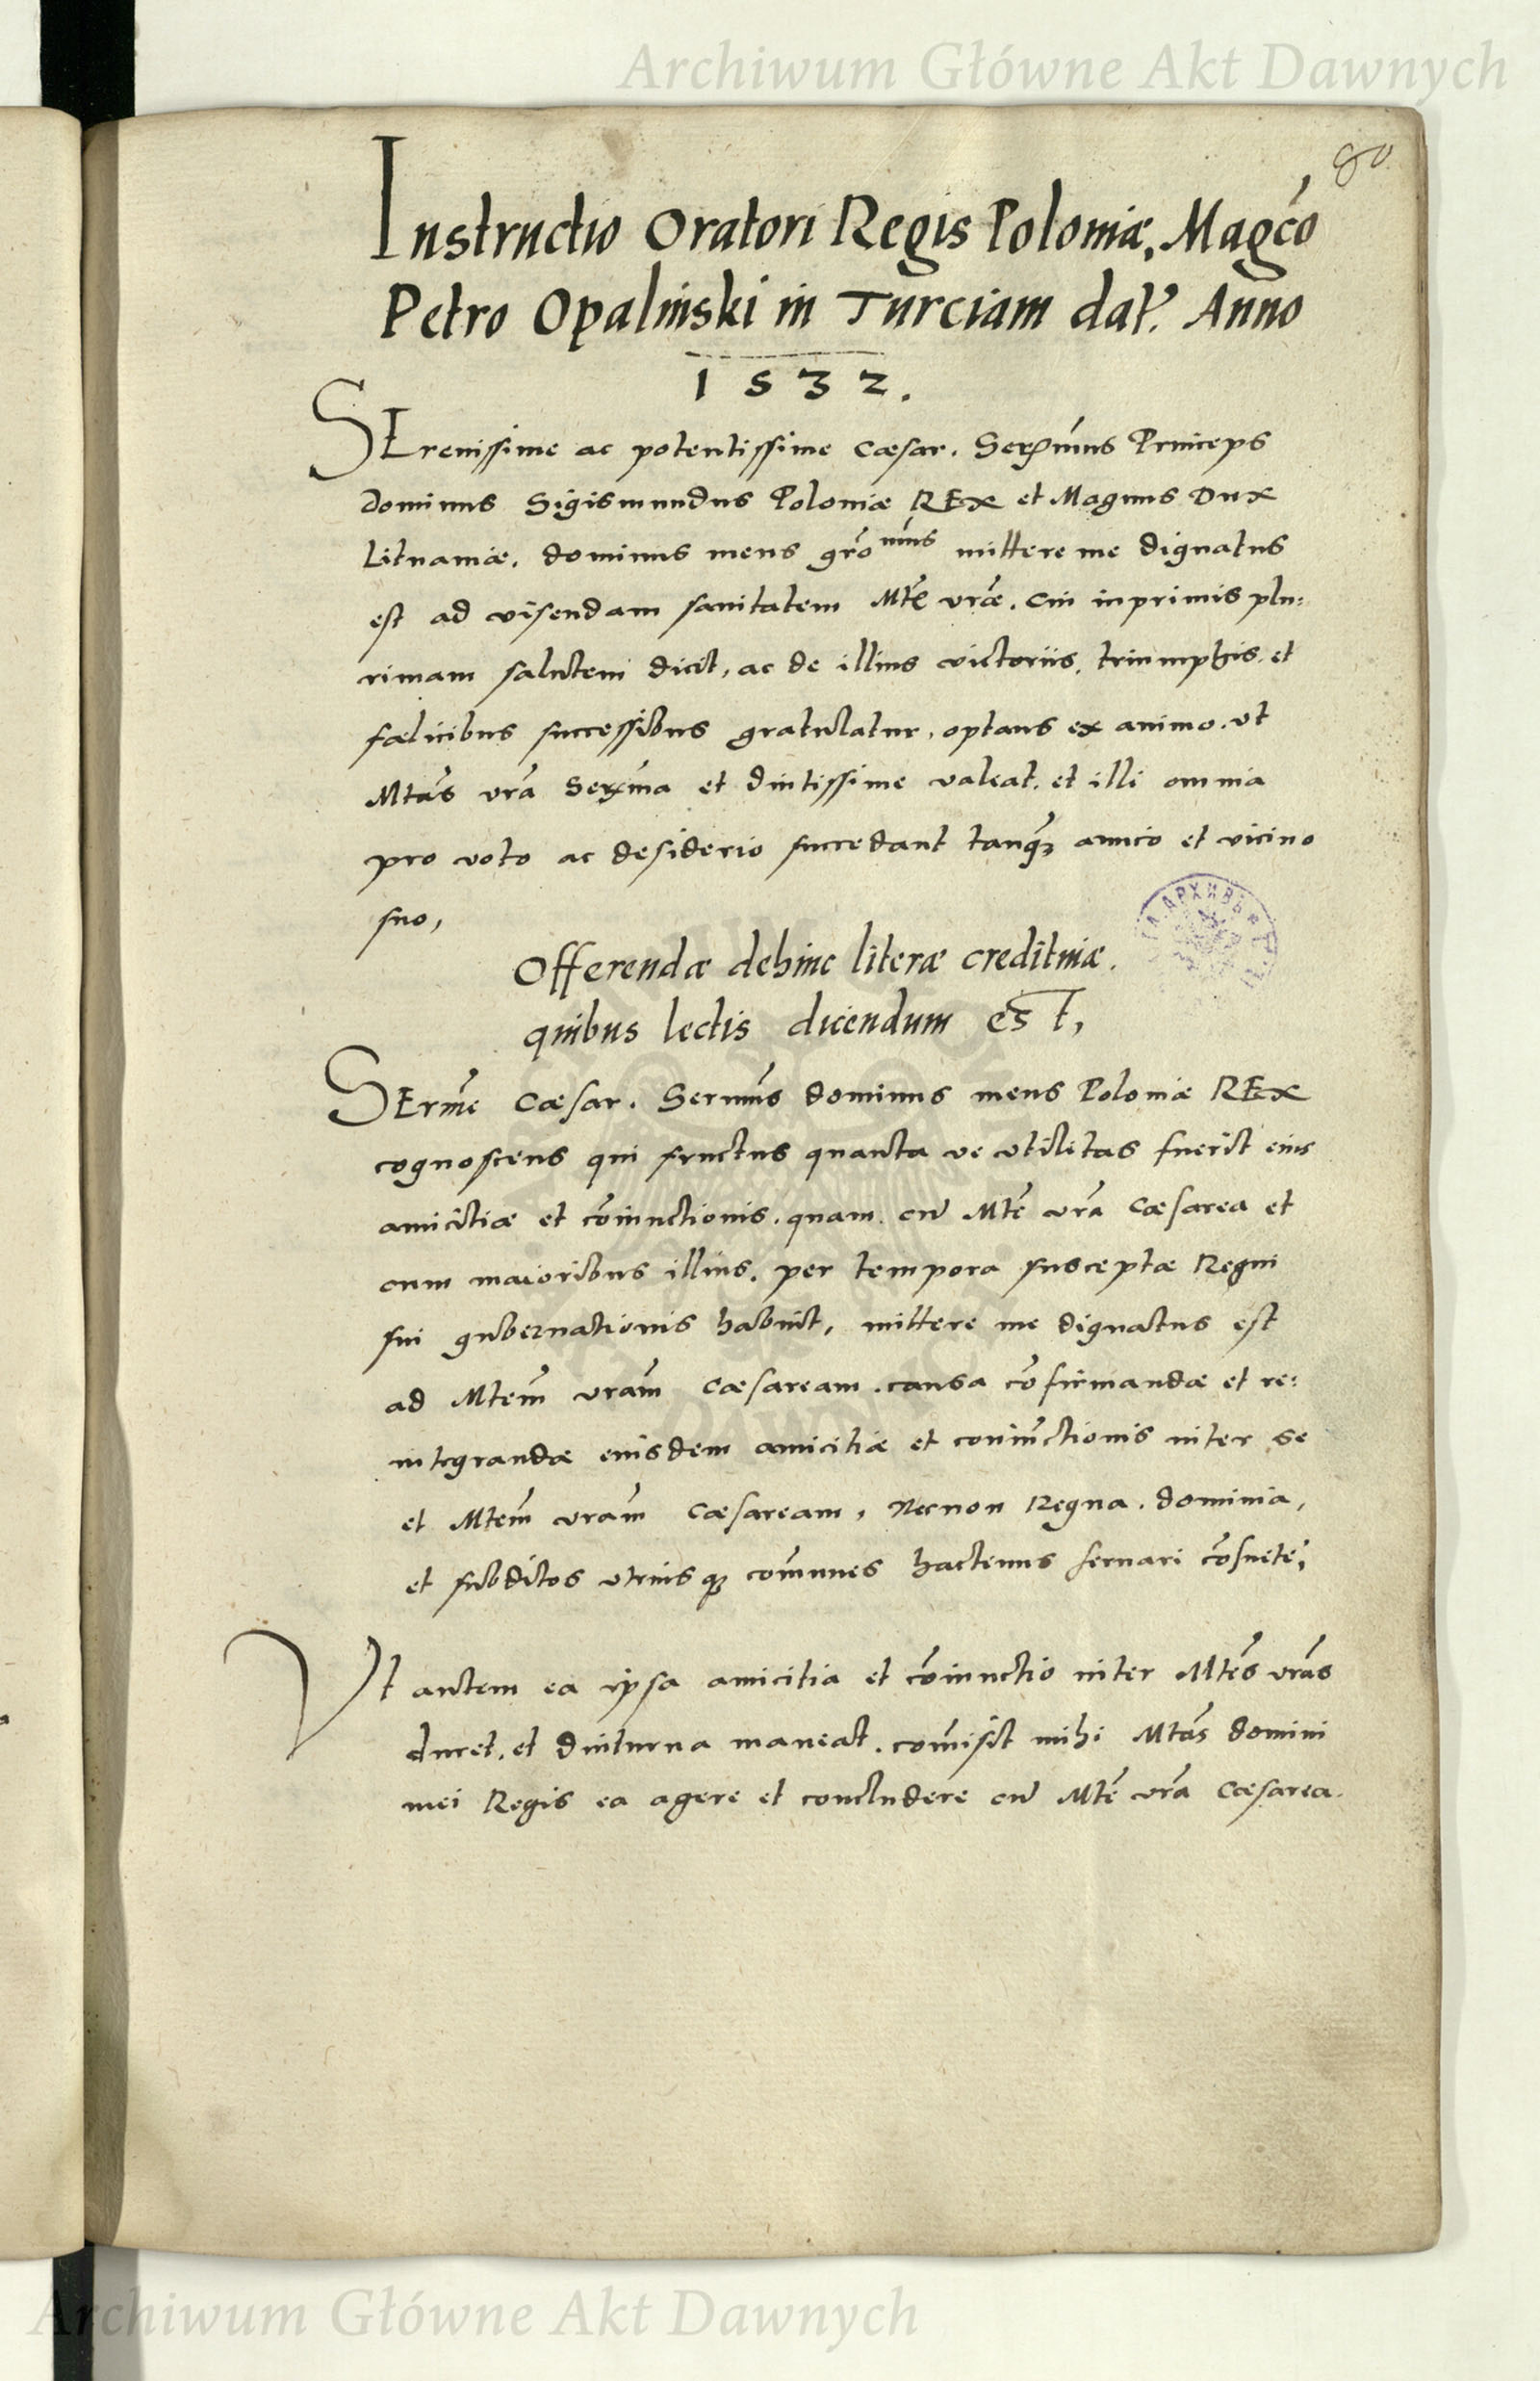 Archiwum Główne Akt Dawnych
80
Instructio Oratori Regis Poloniæ, Mag͞co
Petro Opalinski in Turciam dat͛. Anno
1532.
SErenissime ac potentissime Cæsar. Ser͞mus Princeps
dominus Sigismundus Poloniæ REx et Magnus Dux
Lituaniæ. dominus meus gr͞osmus mittere me dignatus
est ad visendam sanitatem Mt͞s vr͞æ. Cui inprimis plu:
rimam salutem dicit, ac de illius victoriis, triumphis et
fœlicibus successibus gratulatur, optans ex animo. vt
Mta͞s vr͞a Ser͞ma et diutissime valeat. et illi omnia
pro voto ac desiderio succedant tanq̃ȝ amico et vicino
suo,
Offerendæ dehinc literæ credituiæ.
quibus lectis dicendum est,
SEr͞me Cæsar. Ser͞mus dominus meus Poloniæ REx
cognoscens qui fructus quanta ve vtilitas fuerit eius
amicitiæ et co͞iunctionis. quam. cu͞ Mt͞e vr͞a Cæsarea et
cum maioribus illius. per tempora susceptæ Regni
sui gubernationis habuit, mittere me dignatus est
ad Mte͞m vra͞m Cæsaream. causa co͞firmandæ et re:
integrandæ eiusdem amicitiæ et coniu͞ctionis inter se
et Mte͞m vra͞m Cæsaream, Necnon Regna. dominia,
et subditos vtriusqȝ com͞unes hactenus seruari co͞suete͞,
Vt autem ea ipsa amicitia et co͞iunctio inter Mte͞s vra͞s
duret, et diuturna maneat. com͞isit mihi Mta͞s domini
mei Regis ea agere et concludere cu͞ Mt͞e vr͞a Cæsarea.
Archiwum Główne Akt Dawnych